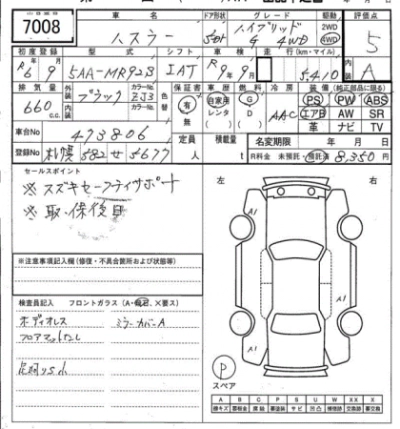 7008
車名 ドア形状 グレード 駆動 評価点
ハスラー 5Dr ハイブリッド G 4WD 2WD 4WD 5
初度登録 型式 シフト 車検 走行(km・マイル) 内装
R6 9 5AA-MR92S IAT R9 9 5410 A
排気量 外装 カラーNo. 色替 保証書 車歴 燃料 冷房 装備(純正部品に限る)
660 c.c. ブラック ZJ3 有 無 自家用 レンタ G D AAC PS PW ABS
内装 カラーNo. エアB AW SR
革 ナビ TV
車台No 473806 定員 人 積載量 名変期限 年 月 日
登録No 札幌 582 せ 5677 R料金 未預託・預託済 8,350円
セールスポイント
※ スズキセーフティサポート
※ 取・保後日
左 右
A1
A1
A1
※注意事項記入欄(修復・不具合箇所および状態等)
検査員記入 フロントガラス(A・飛石、×要ス)
ボディオレス ミラーカバーA
フロアマットなし
P
スペア
A B C P S U W X XX